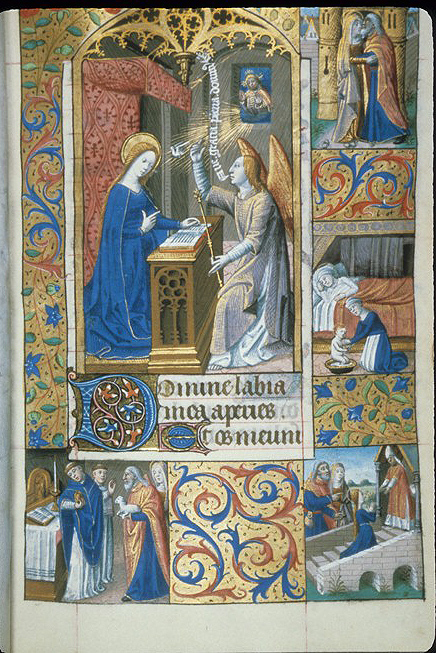 gratia plena domin
Domine labia
mea aperies
Et os meum